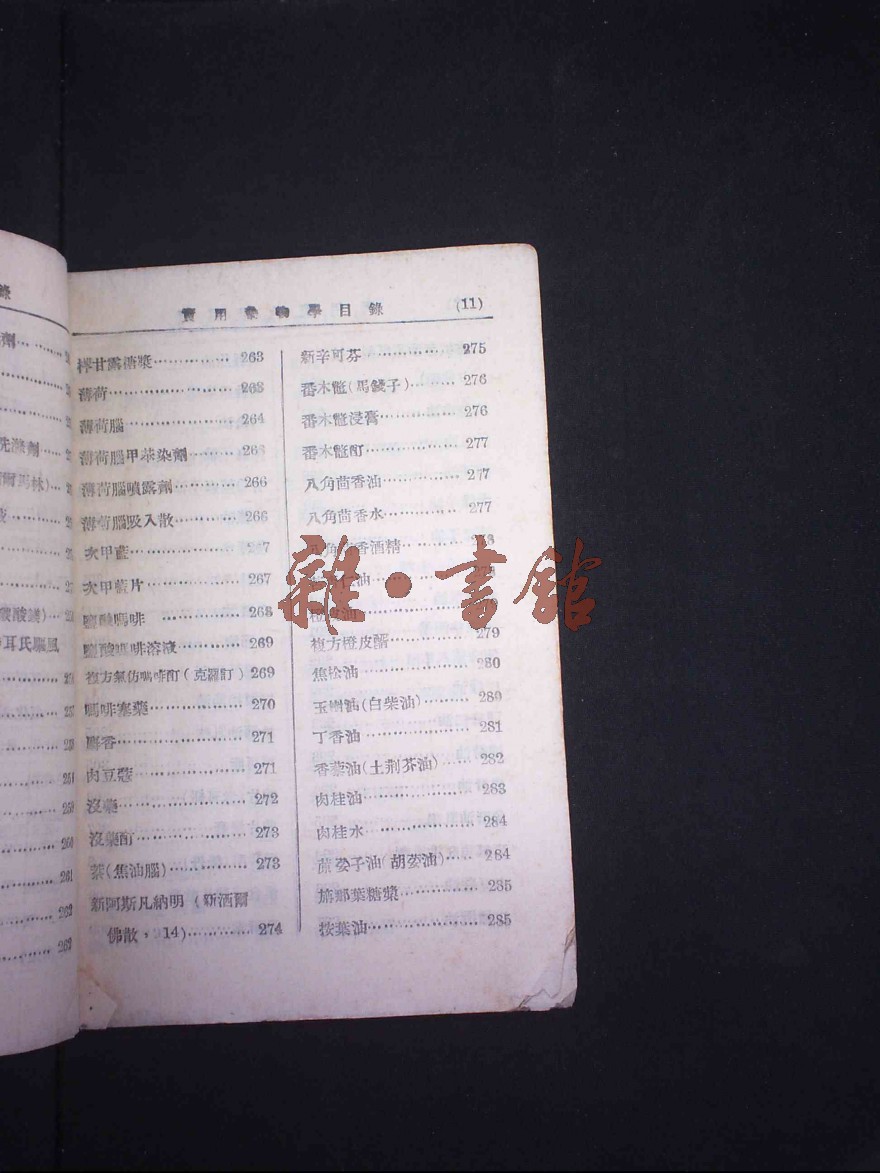 實用藥物學目錄 (11)
檸甘露糖漿 263
薄荷 263
薄荷腦 264
薄荷腦甲苯染劑 26
薄荷腦噴露劑 266
薄荷腦吸入散 266
次甲藍
次甲藍片 267
鹽酸嗎啡 268
鹽酸嗎啡溶液 269
複方氯仿嗎啡酊(克羅酊) 269
嗎啡塞藥 270
麝香 271
肉豆蔻 271
沒藥 272
沒藥酊 273
萘(焦油腦) 273
新阿斯凡納明(新洒爾
佛散,14) 274
新辛可芬 275
番木虌(馬錢子) 276
番木虌浸膏 276
番木虌酊 277
八角茴香油 277
八角茴香水 277
八角茴香酒精
油
油
複方橙皮醑 279
焦松油 280
玉樹油(白柴油) 280
丁香油 281
香藜油(土荊芥油) 282
肉桂油 283
肉桂水 284
芫荽子油(胡荽油) 284
旃那葉糖漿 285
桉葉油 285
雜·書館
錄
劑
洗滌劑
爾馬林)
液
酸鎂)
耳氏驅風
260
261
262